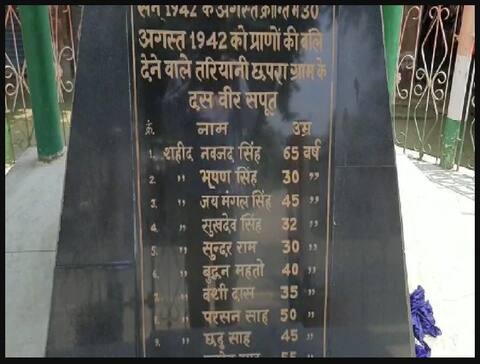 सन् 1942 के अगस्त क्रान्ति में 30
अगस्त 1942 को प्राणों की बलि
देने वाले तरियानी छपरा ग्राम के
दस वीर सपूत
क्रं. नाम उम्र
1. शहीद नवजद सिंह 65 वर्ष
2. ,, भूषण सिंह 30 ,,
3. ,, जय मंगल सिंह 45 ,,
4. ,, सुखदेव सिंह 32 ,,
5. ,, सुन्दर राम 30 ,,
6. ,, बुद्धन महतो 40 ,,
7. ,, वंशी दास 35 ,,
,, परसन साह 50 ,,
9. ,, छठु साह 45 ,,
55 ,,